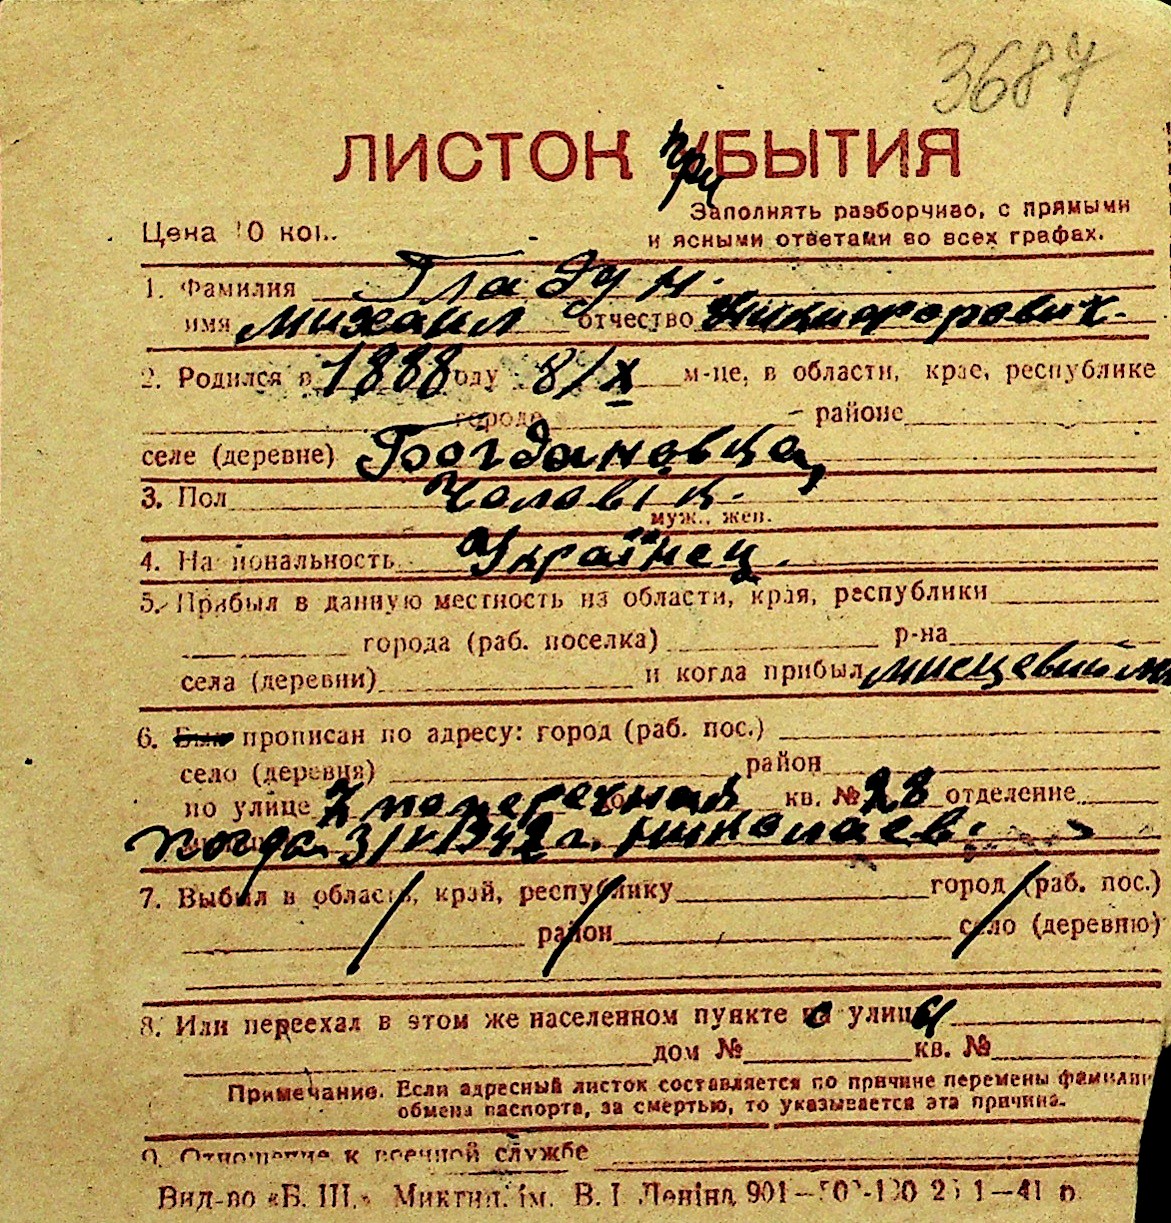 3687
ЛИСТОК при БЫТИЯ
Заполнять разборчиво, с прямыми
Цена 10 коп. и ясными ответами во всех графах.
1. Фамилия Гладун.
имя Михаил отчество Никифорович.
2. Родился в 1888 году 8/X м-це, в области, крае, республике
городе районе
селе (деревне) Богдановца,
3. Пол Чоловік.
муж., жен.
4. Национальность Українец.
5. Прибыл в данную местность из области, края, республики
города (раб. поселка) р-на
села (деревни) и когда прибыл мисцевий
6. Был прописан по адресу: город (раб. пос.)
село (деревня) район
по улице поперечная кв. № 28 отделение
когда 3/ 1942 г. Николаев.
7. Выбыл в область, край, республику город (раб. пос.)
район село (деревню)
8. Или переехал в этом же населенном пункте с улицы
дом № кв. №
Примечание. Если адресный листок составляется по причине перемены фамилии
обмена паспорта, за смертью, то указывается эта причина.
9. Отношение к военной службе
Вид-во «Б. Ш.» Миктип. ім. В. І Леніна 901— 1—41 р.